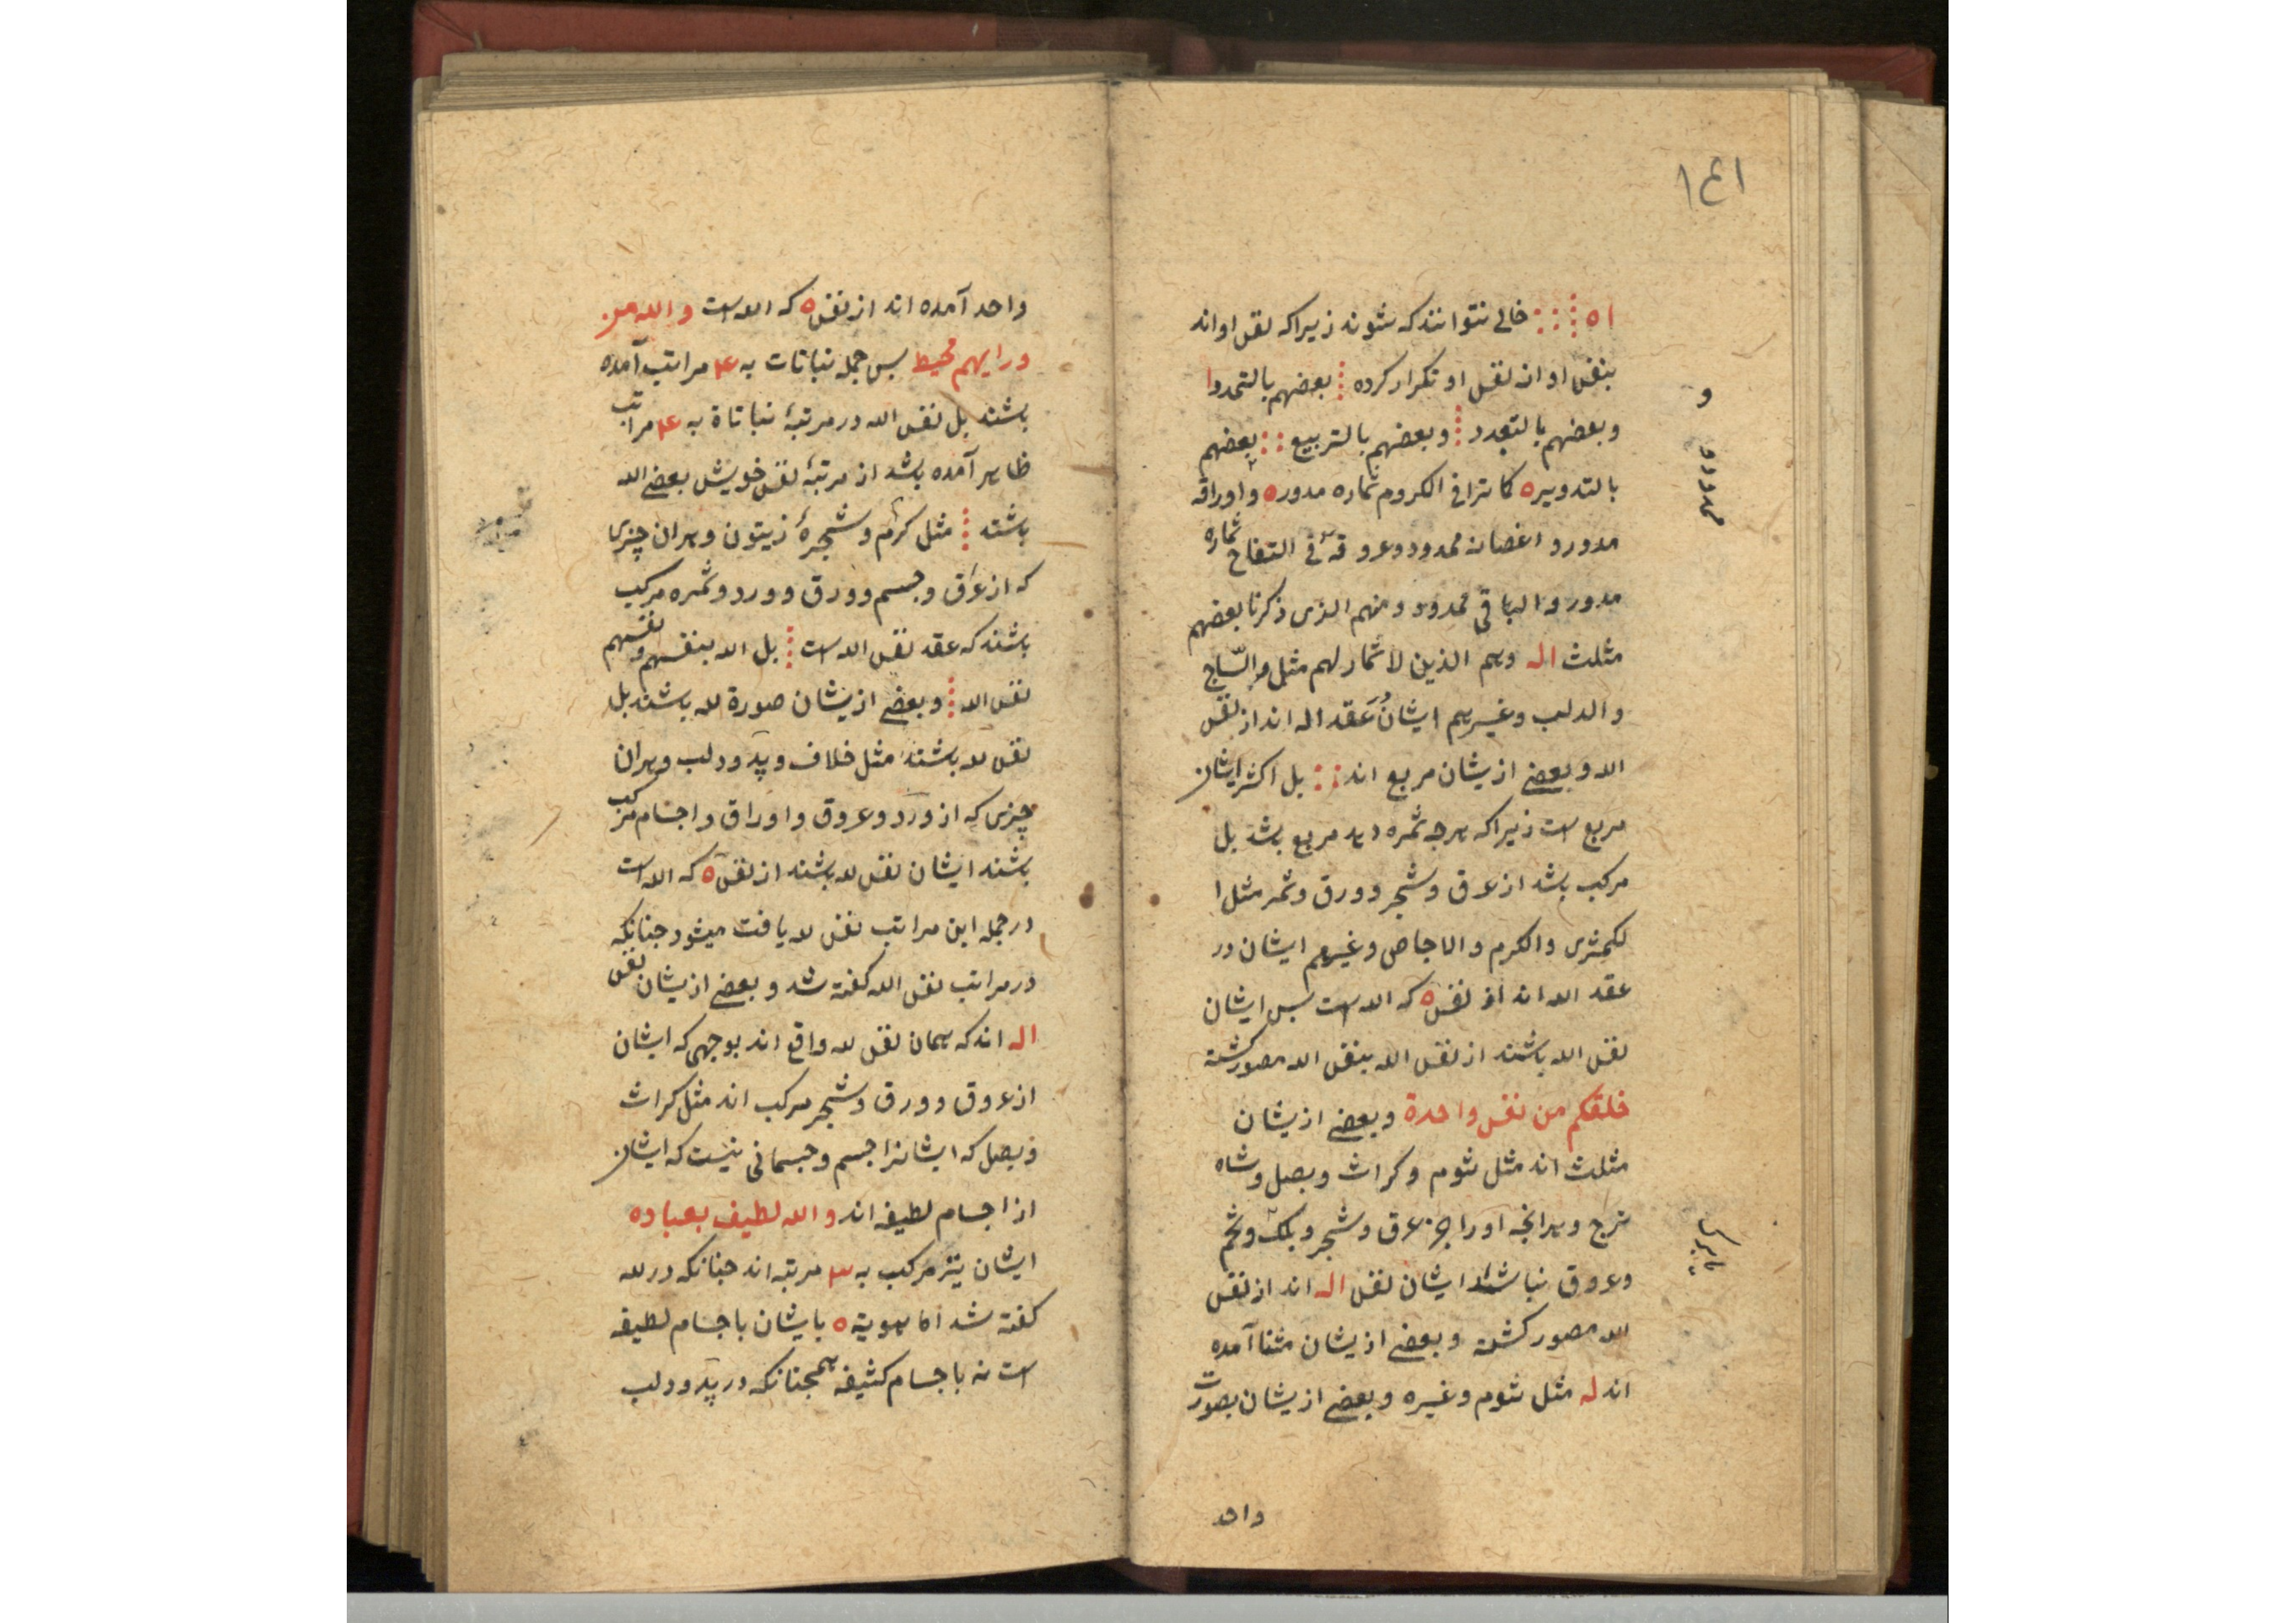 ١٤١
ا ه خالی نتوانند که شوند زیرا که نقس او اند
بنفس او از نقس او تکرار کرده بعضهم بالتحدوا
وبعضهم بالتعدد وبعضهم بالتربیع بعضهم
بالتدویر ه کما ترا فی الکروم ثماره مدوره و اوراقه
مدور و اغصانه محدود وعروقه فی التفاح ثماره
مدور و الباقی محدود ومنهم الذی ذکرنا بعضهم
مثلث اله وهم الذین لا ثمار لهم مثل والسّاج
والدلب وغیرهم ایشان عقد اله اند از نقس
الله وبعضی ازیشان مربع اند بل اکثر ایشان
مربع است زیرا که هرچه ثمره دهد مربع باشد بل
مرکب باشد از عرق وشجر وورق وثمر مثل ا
لکمثری والکرم والاجاص وغیرهم ایشان در
عقد الله اند از نقس ه که الله است بس ایشان
نقس الله باشند از نقس الله بنقس الله مصور کشته
خلقکم من نفس واحدة وبعضی ازیشان
مثلث اند مثل ثوم وکراث وبصل وشاه
ترج وهرانچه اورا جز عرق وشجر وبلک وتخم
وعروق نباشد ایشان نقس اله اند از نقس
لله مصور کشته وبعضی ازیشان مثنا آمده
اند له مثل ثوم وغیره وبعضی ازیشان بصورت
واحد
واحد آمده اند از نقس ه که الله است والله من
ورایهم محیط بس جمله نباتات به ۴ مراتب آمده
باشند بل نقس الله در مرتبهٔ نباتاة به ۴ مراتب
ظاهر آمده باشد از مرتبهٔ نقس خویش بعضی الله
باشند مثل کرم وشجرهٔ زیتون وهران چیزی
که از عرق وجسم وورق وورد وثمره مرکب
باشند که عقد نقس الله است بل الله بنفسهم ونفسهم
نقس الله وبعضی ازیشان صورة لله باشند بل
نقس لله باشند مثل خلاف وید ودلب وهران
چیزی که از ورد وعروق و اوراق و اجسام مرکب
باشند ایشان نقس لله باشند از نقس ه که الله است
در جمله این مراتب نقس لله یافت میشود جنانکه
در مراتب نقس الله کفته شد وبعضی ازیشان نقس
اله اند که همان نقس لله واقع اند بوجهی که ایشان
از عروق وورق وشجر مرکب اند مثل کراث
وبصل که ایشانرا جسم وجسمانی نیست که ایشان
از اجسام لطیفه اند والله لطیف بعباده
ایشان نیز مرکب به ۳ مرتبه اند جنانکه در لله
کفته شد اما هویة ه بایشان باجسام لطیفه
است نه باجسام کثیفه همجنانکه در ید ودلب